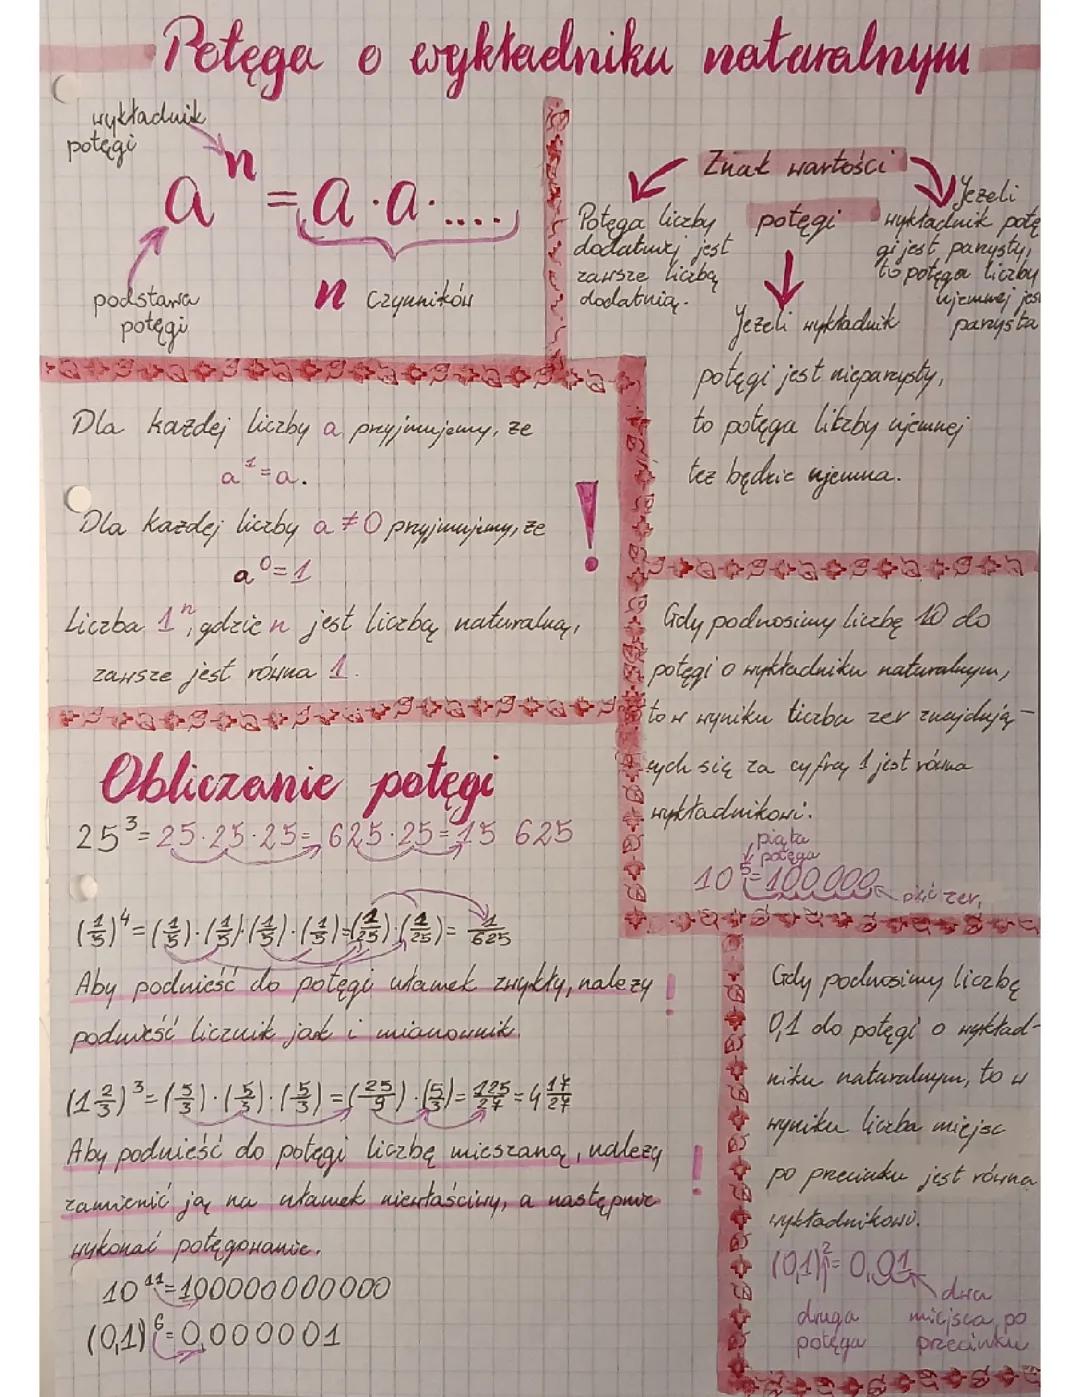 Potęga o wykładniku naturalnym
wykładnik
potęgi
aⁿ = a·a·....
podstawa
potęgi
n czynników
Znak wartości
potęgi
Potęga liczby
dodatniej jest
zawsze liczbą
dodatnią.
Jeżeli wykładnik
potęgi jest nieparzysty,
to potęga liczby ujemnej
też będzie ujemna.
Jeżeli
wykładnik potę
gi jest parzysty,
to potęga liczby
ujemnej jes
parzysta
Dla każdej liczby a przyjmujemy, że
a¹=a.
Dla każdej liczby a ≠ 0 przyjmujemy, że
a⁰=1
!
Liczba 1ⁿ, gdzie n jest liczbą naturalną,
zawsze jest równa 1.
Gdy podnosimy liczbę 10 do
potęgi o wykładniku naturalnym,
to w wyniku liczba zer znajdują-
cych się za cyfrą 1 jest równa
wykładnikowi.
piąta
potęga
10⁵=100000
zer
Obliczanie potęgi
25³=25·25·25=625·25=15 625
(1/5)⁴=(1/5)·(1/5)·(1/5)·(1/5)=(1/25)·(1/25)=1/625
Aby podnieść do potęgi ułamek zwykły, należy !
podnieść licznik jak i mianownik.
(1 2/3)³=(5/3)·(5/3)·(5/3)=(25/9)·(5/3)=125/27=4 17/27
Aby podnieść do potęgi liczbę mieszaną, należy !
zamienić ją na ułamek niewłaściwy, a następnie
wykonać potęgowanie.
10¹¹=100000000000
(0,1)⁶=0,000001
Gdy podnosimy liczbę
0,1 do potęgi o wykład-
niku naturalnym, to w
wyniku liczba miejsc
po przecinku jest równa
wykładnikowi.
(0,1)²=0,01
druga
potęga
dwa
miejsca po
przecinku